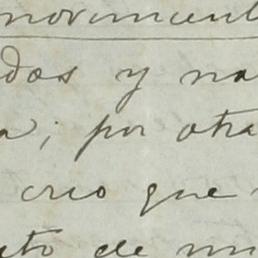 movimient
dos y no
a; por otra
creo que
to de mi